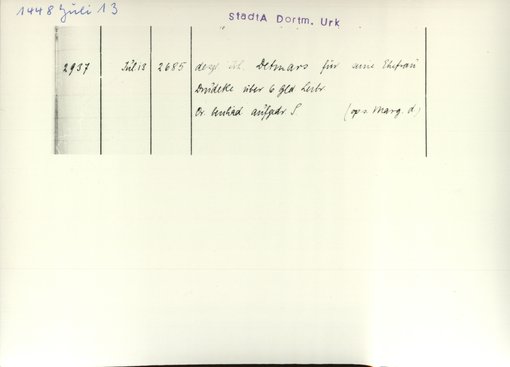 1448 Juli 13
StadtA Dortm. Urk
2937 Jul 13 2685 desgl. Detmars für seine Ehefrau
Drudeke über 6 Gld Leibr.
Or besiad aufgedr S. (op s. Marg. d)